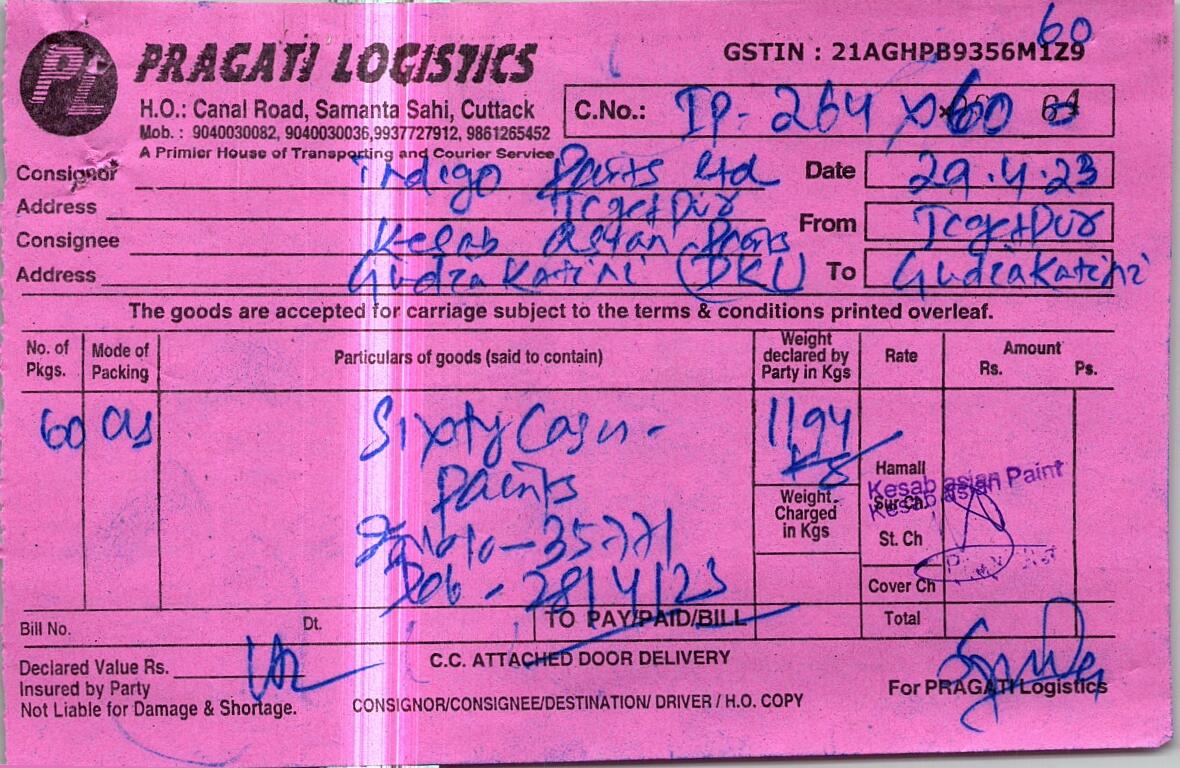 60
PRAGATI LOGISTICS
GSTIN : 21AGHPB9356M1Z9
H.O.: Canal Road, Samanta Sahi, Cuttack
C.No.: IP-264 60
Mob. : 9040030082, 9040030036,9937727912, 9861265452
A Primier House of Transporting and Courier Service
Consignor Indigo Paints Ltd
Date 29.4.23
Address
Consignee Kesab asian Paints
From
Address Gudiakatini (DKL)
To Gudiakatini
The goods are accepted for carriage subject to the terms & conditions printed overleaf.
No. of Pkgs.
Mode of Packing
Particulars of goods (said to contain)
Weight declared by Party in Kgs
Rate
Amount
Rs. Ps.
60
Sixty
1194
Paints
35771
28/4/23
Weight Charged in Kgs
Hamali
Kesab asian Paint
Kesab asian
Sur Ch.
St. Ch
Cover Ch
Bill No. Dt.
TO PAY/PAID/BILL
Total
Declared Value Rs.
C.C. ATTACHED DOOR DELIVERY
Insured by Party
For PRAGATI Logistics
Not Liable for Damage & Shortage.
CONSIGNOR/CONSIGNEE/DESTINATION/ DRIVER / H.O. COPY